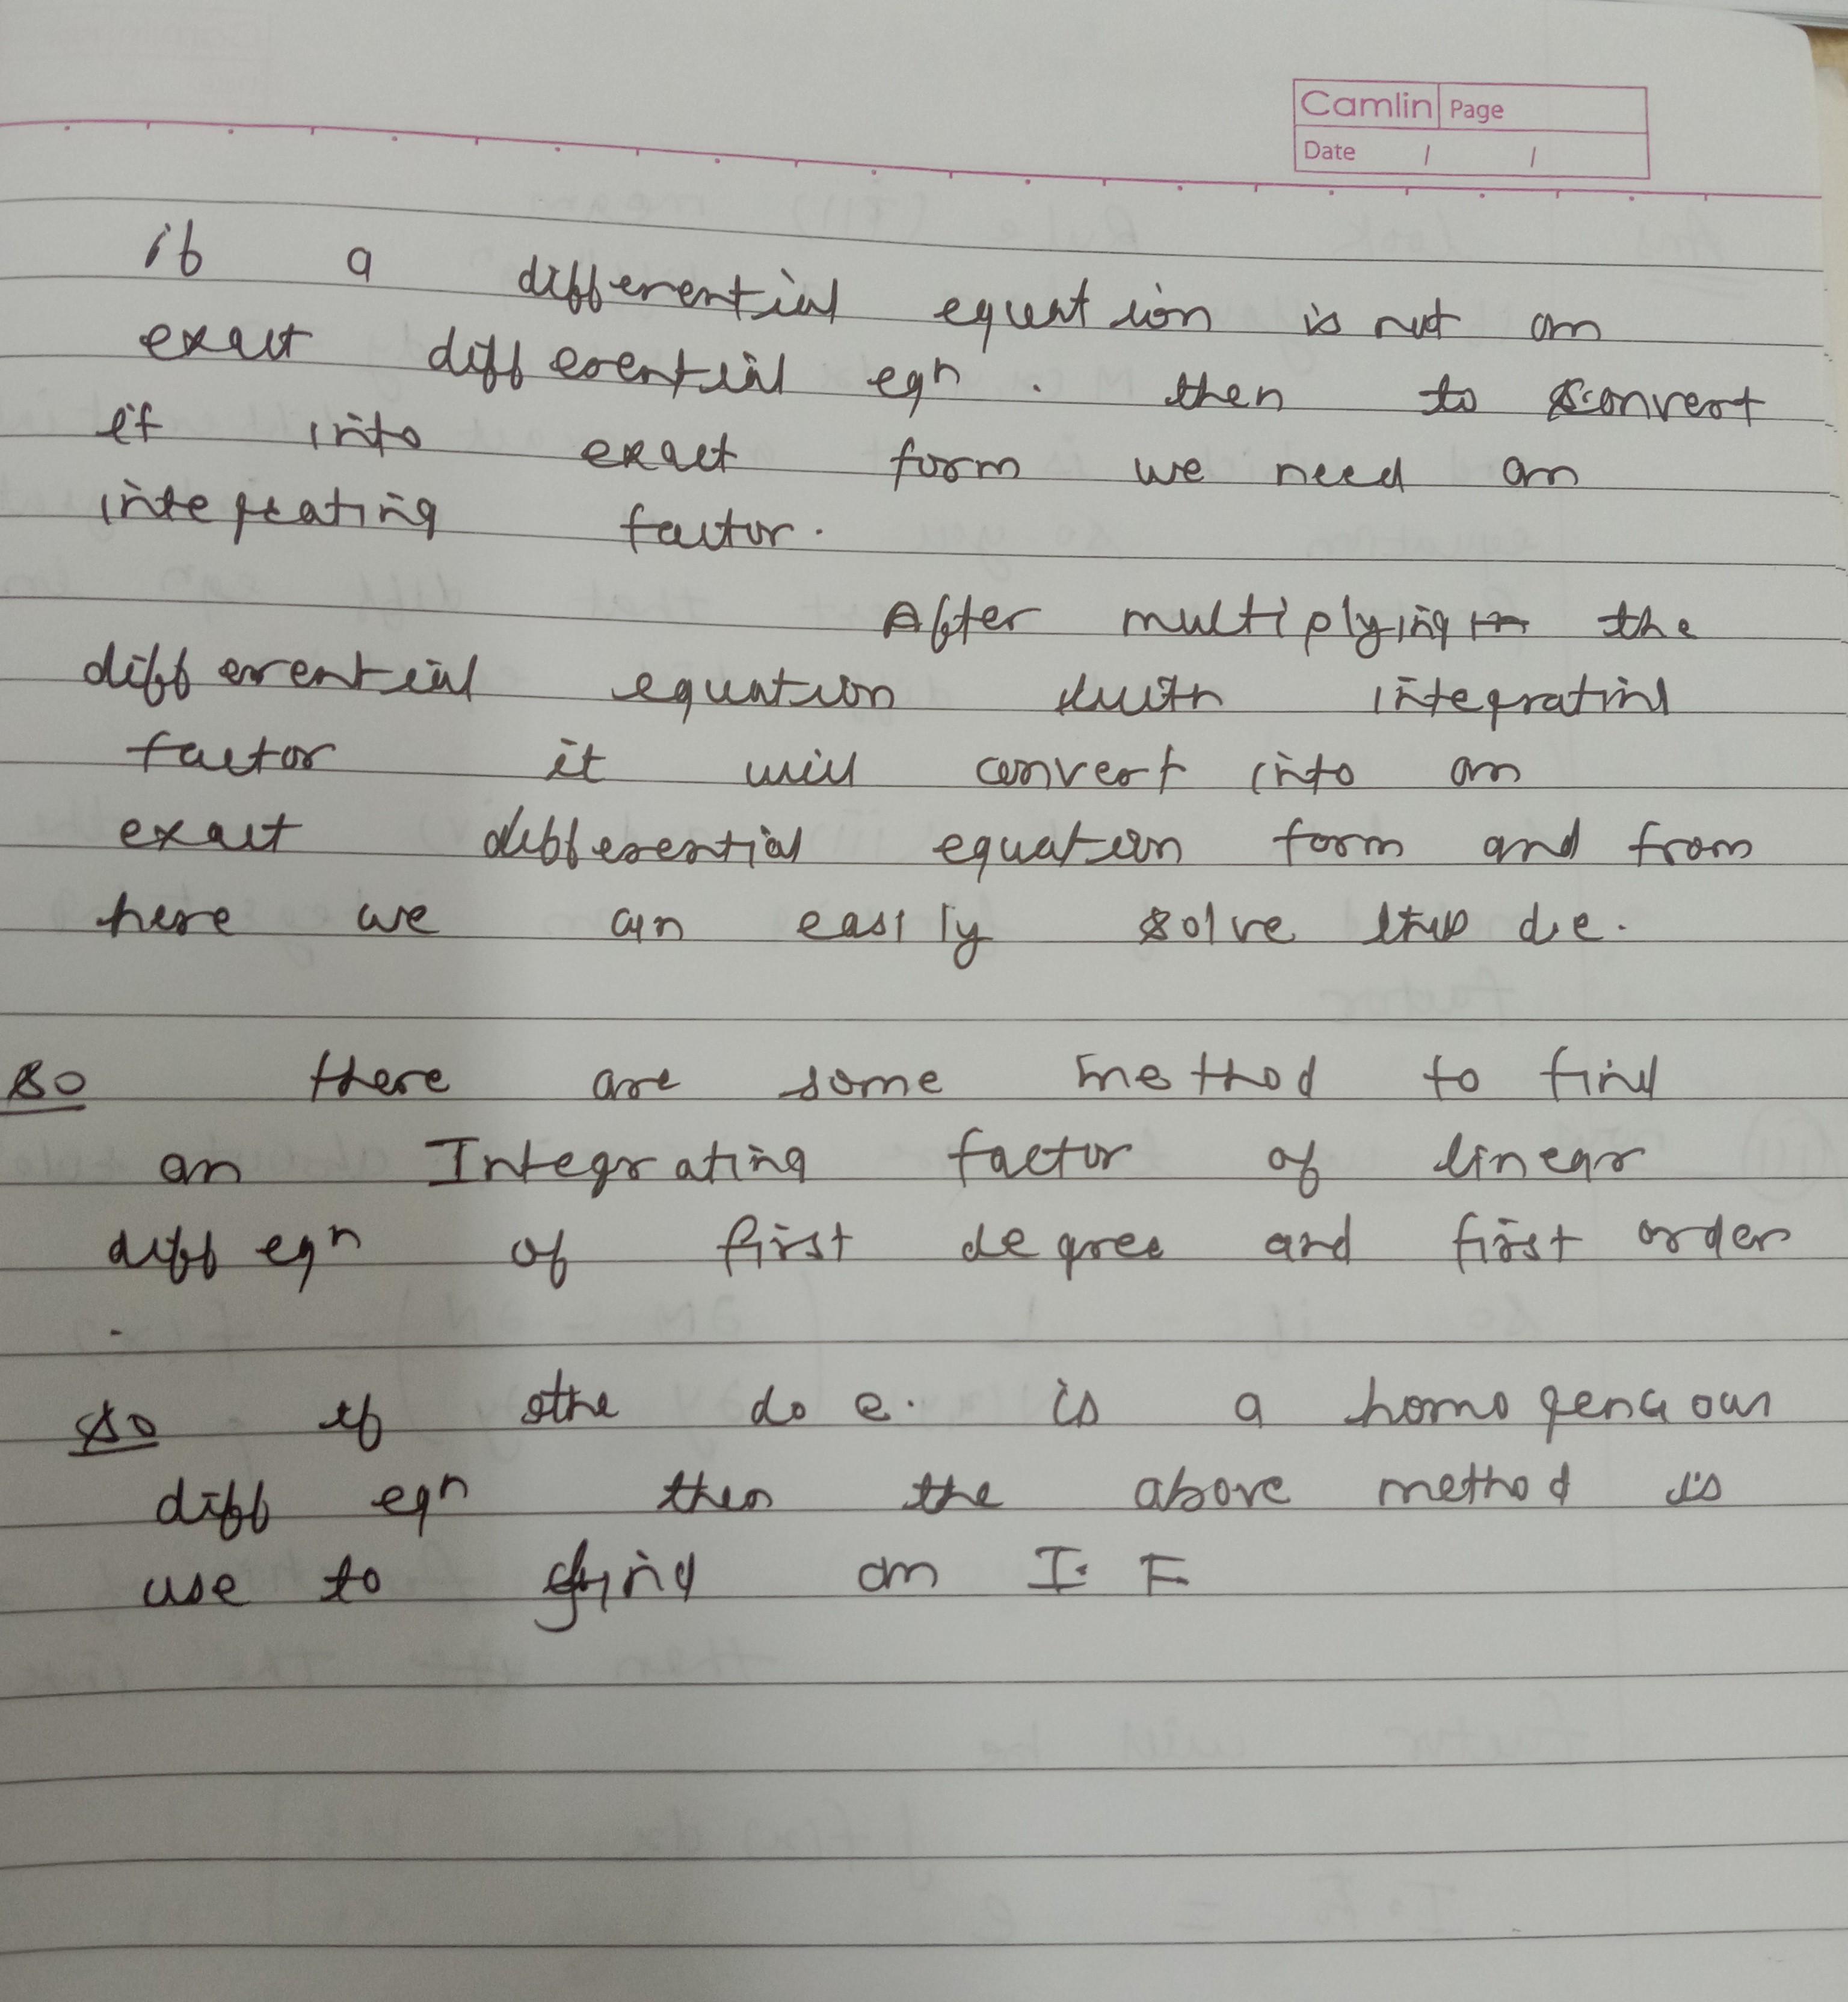 Camlin Page
Date / /
if a differential equation is not an
exact differential eqn. then to convert
it into exact form we need an
integrating factor.
After multiplying the
differential equation with integrating
factor it will convert into an
exact differential equation form and from
here we can easily solve this d.e.
so there are some method to find
an Integrating factor of linear
diff eqn of first degree and first order
.
so if the d.e. is a homogeneous
diff eqn then the above method is
use to find an I.F